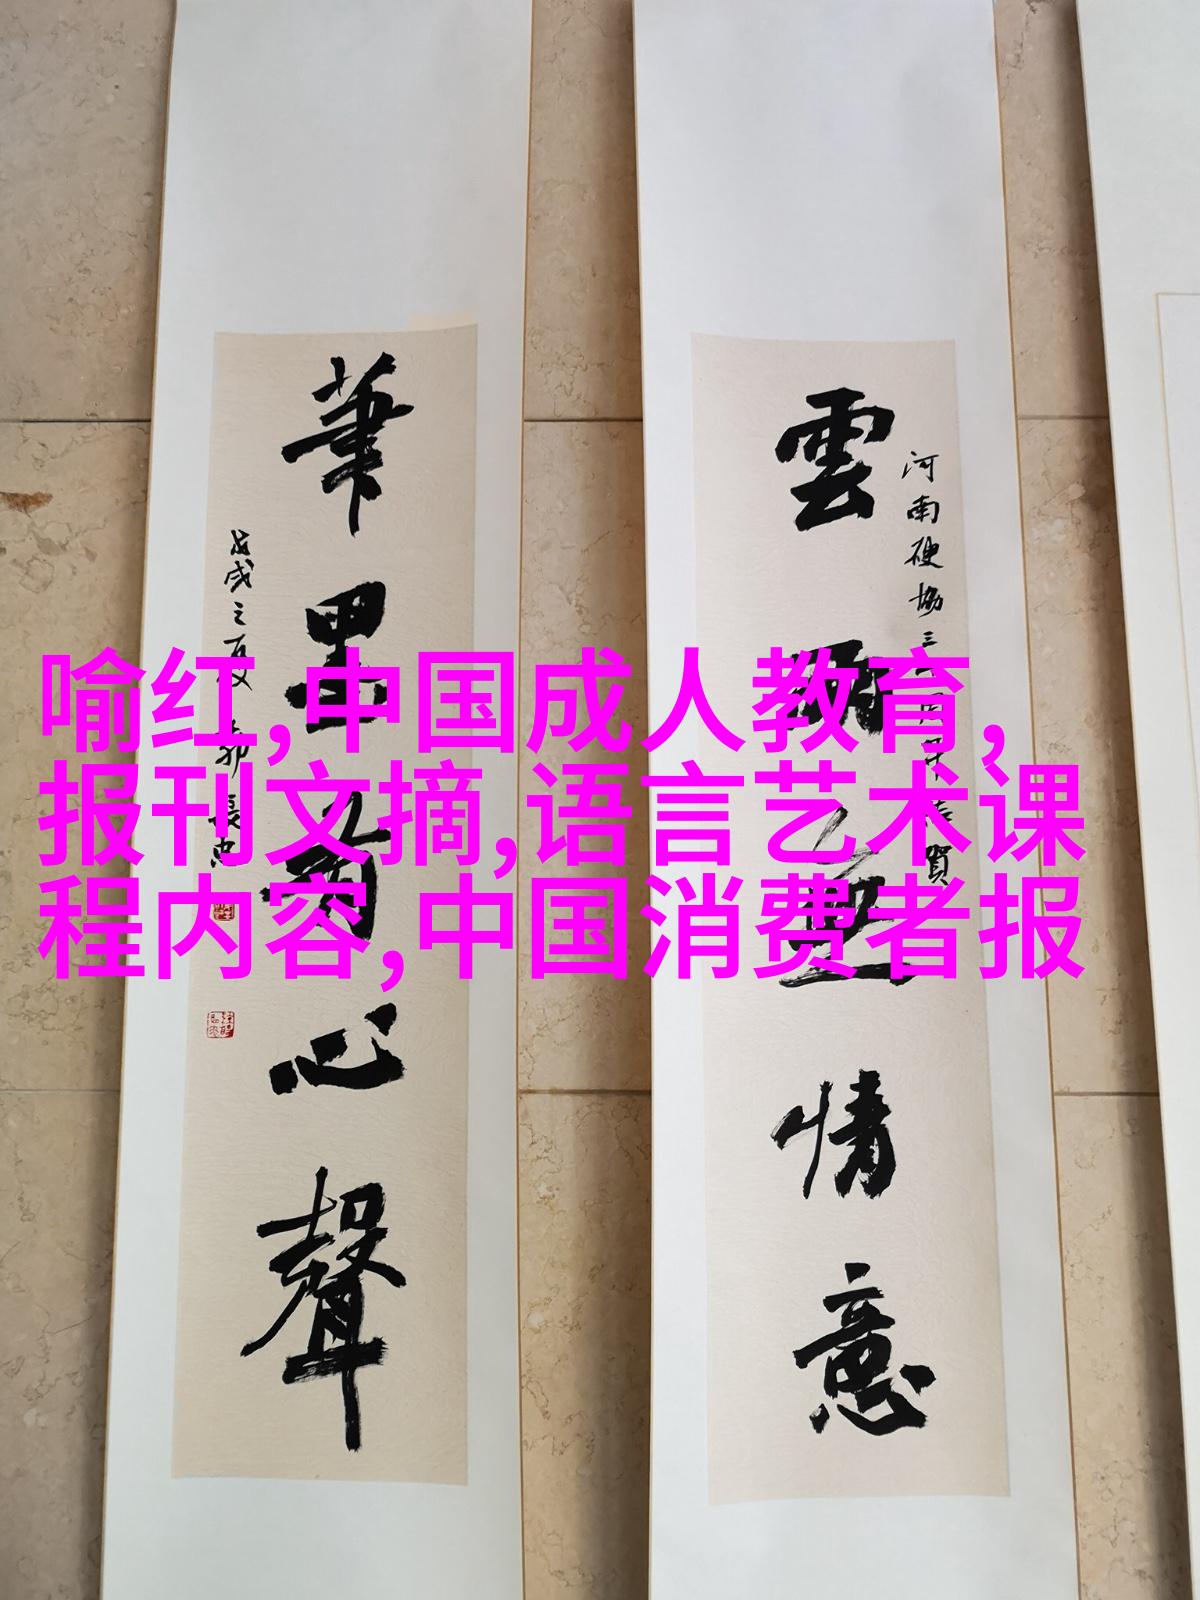 喻红,中国成人教育,
报刊文摘,语言艺术课
程内容,中国消费者报
雲雨無情意
河南硬協三周年志賀
筆墨有心聲
戊戌之夏